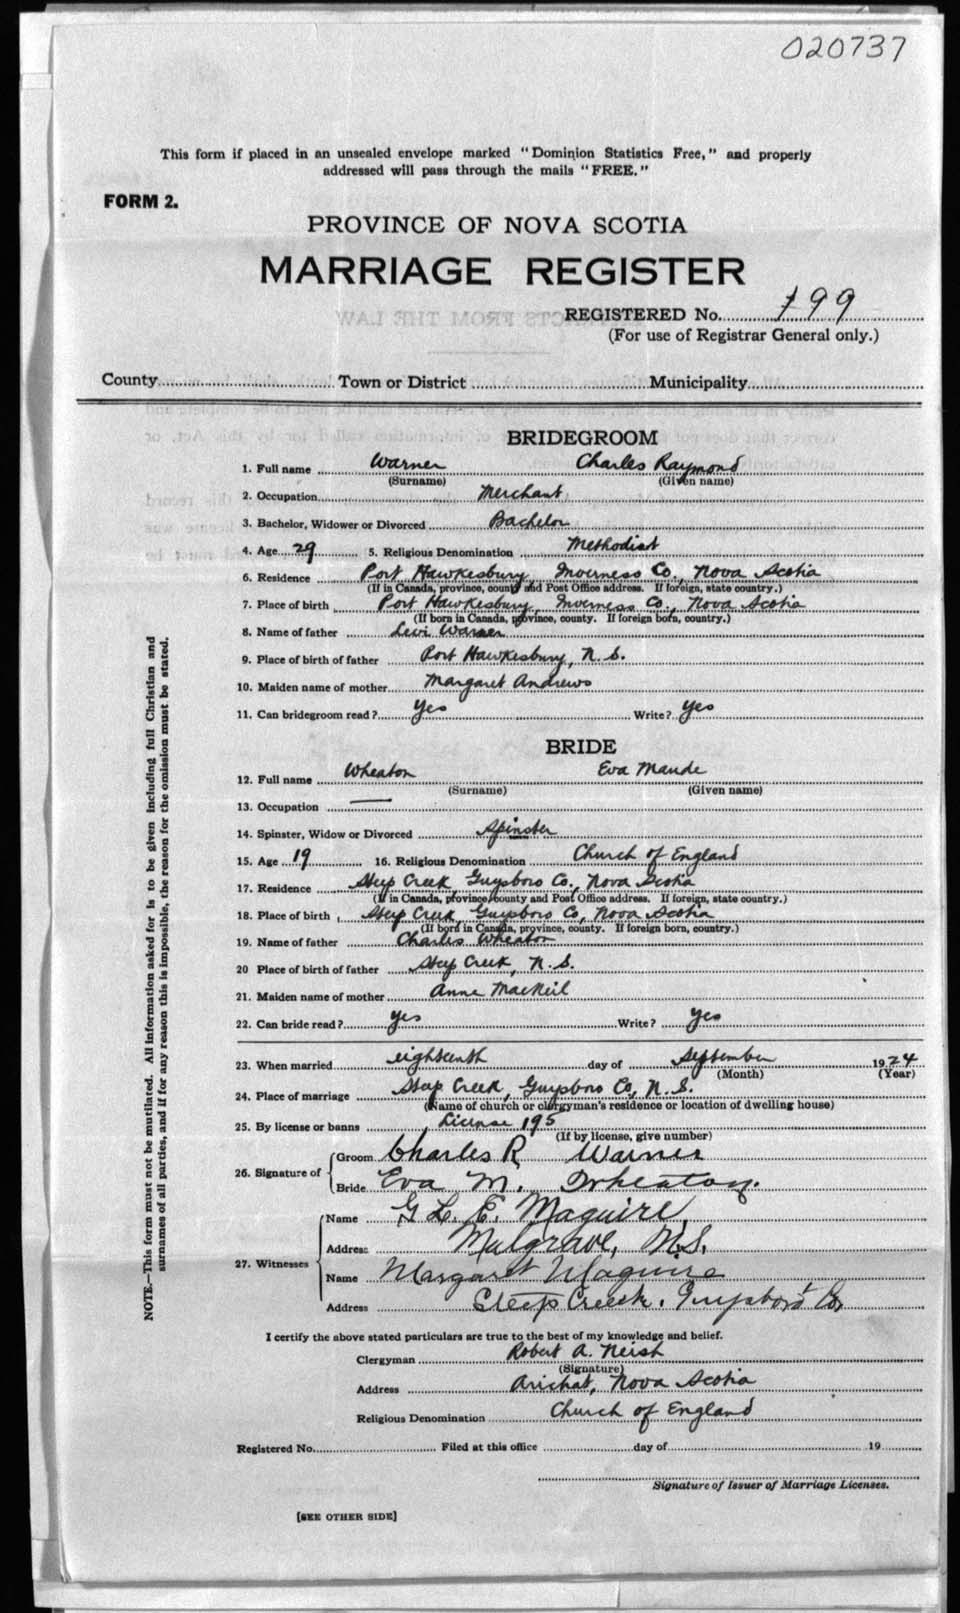 020737
This form if placed in an unsealed envelope marked "Dominion Statistics Free," and properly
addressed will pass through the mails "FREE."
FORM 2.
PROVINCE OF NOVA SCOTIA
MARRIAGE REGISTER
REGISTERED No. 199
(For use of Registrar General only.)
County Town or District Municipality
BRIDEGROOM
1. Full name Warner Charles Raymond
(Surname) (Given name)
2. Occupation Merchant
3. Bachelor, Widower or Divorced Bachelor
4. Age 29 5. Religious Denomination Methodist
6. Residence Port Hawkesbury, Inverness Co., Nova Scotia
(If in Canada, province, county and Post Office address. If foreign, state country.)
7. Place of birth Port Hawkesbury, Inverness Co., Nova Scotia
(If born in Canada, province, county. If foreign born, country.)
8. Name of father Levi Warner
9. Place of birth of father Port Hawkesbury, N.S.
10. Maiden name of mother Margaret Andrews
11. Can bridegroom read? Yes Write? Yes
BRIDE
12. Full name Wheaton Eva Maude
(Surname) (Given name)
13. Occupation —
14. Spinster, Widow or Divorced Spinster
15. Age 19 16. Religious Denomination Church of England
17. Residence Steep Creek, Guysboro Co., Nova Scotia
(If in Canada, province, county and Post Office address. If foreign, state country.)
18. Place of birth Steep Creek, Guysboro Co, Nova Scotia
(If born in Canada, province, county. If foreign born, country.)
19. Name of father Charles Wheaton
20 Place of birth of father Steep Creek, N.S.
21. Maiden name of mother Anne MacNeil
22. Can bride read? Yes Write? Yes
23. When married eighteenth day of September 1924
(Month) (Year)
24. Place of marriage Steep Creek, Guysboro Co, N.S.
(Name of church or clergyman's residence or location of dwelling house)
25. By license or banns License 195
(If by license, give number)
26. Signature of Groom Charles R Warner
Bride Eva M. Wheaton.
27. Witnesses Name G L. E. Maguire,
Address Mulgrave, N.S.
Name Margaret Maguire
Address Steep Creek, Guysboro Co,
I certify the above stated particulars are true to the best of my knowledge and belief.
Clergyman Robert A. Neish
(Signature)
Address Arichat, Nova Scotia
Religious Denomination Church of England
Registered No. Filed at this office day of 19
Signature of Issuer of Marriage Licenses.
[SEE OTHER SIDE]
NOTE.—This form must not be mutilated. All information asked for is to be given including full Christian and
surnames of all parties, and if for any reason this is impossible, the reason for the omission must be stated.